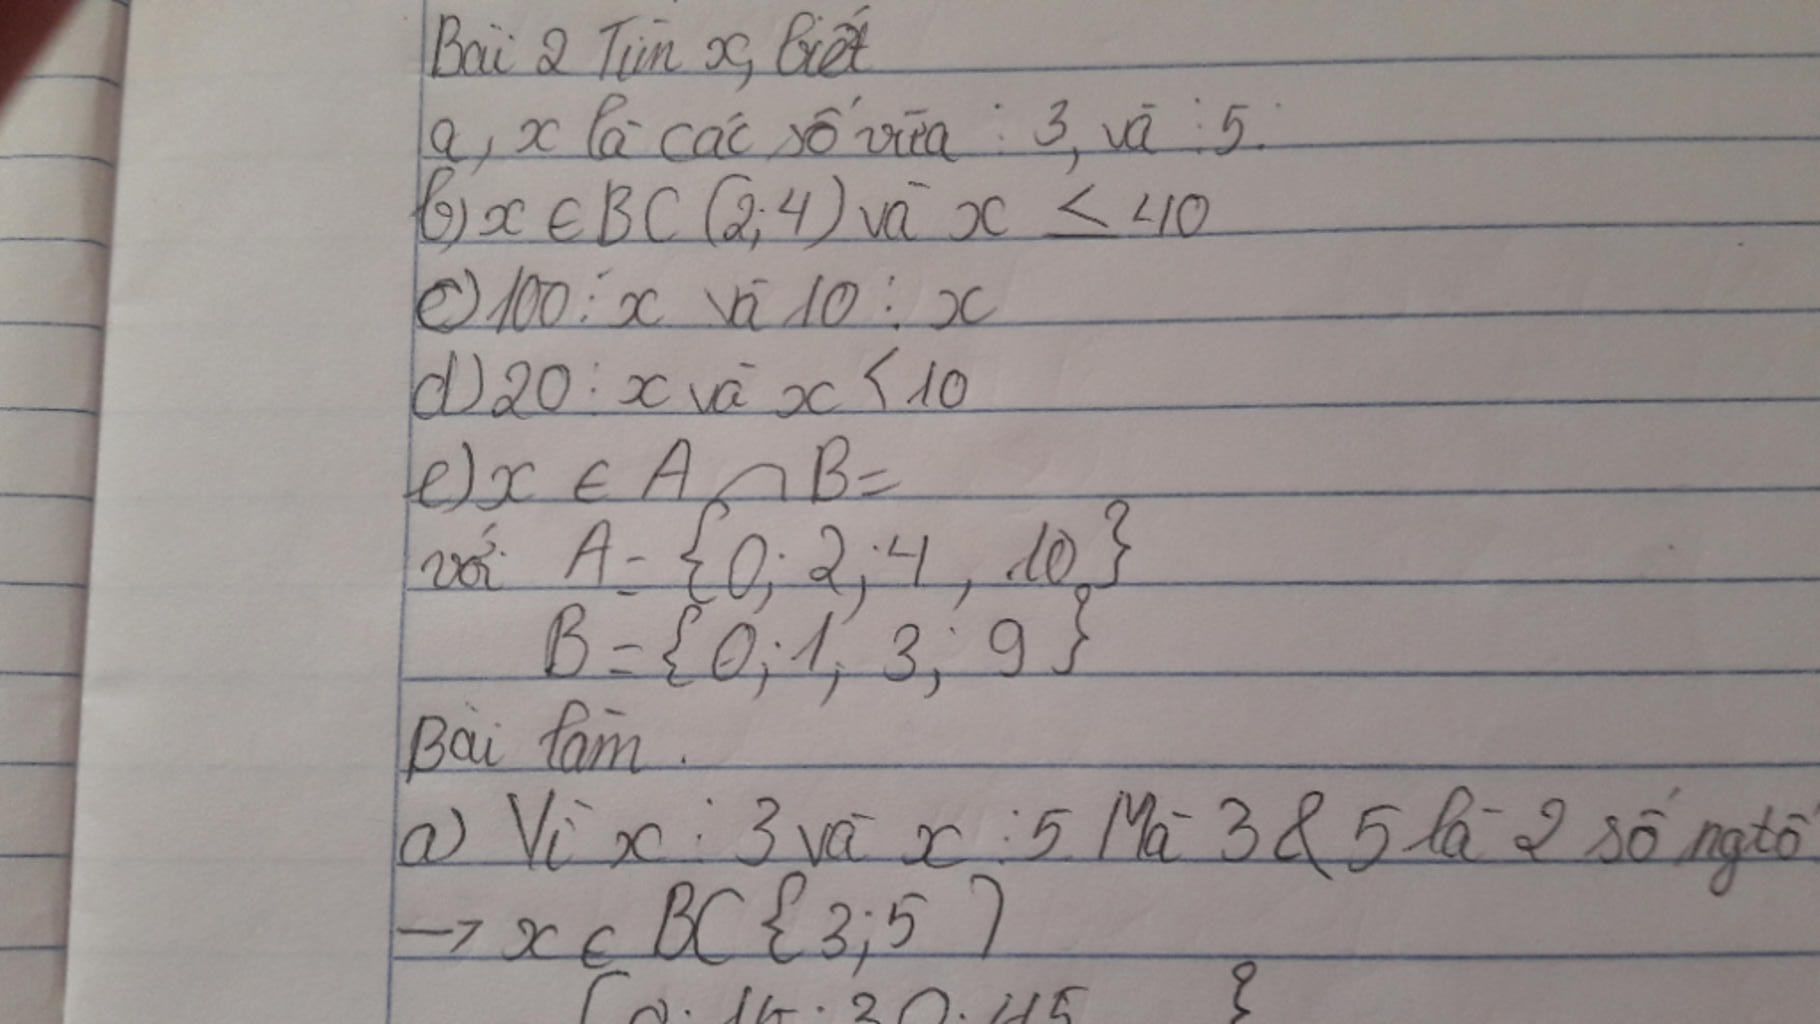 Bài 2 Tìm x, biết
a, x là các số vừa ⋮ 3, và ⋮ 5.
b) x ∈ BC (2; 4) và x ≤ 40
c) 100 ⋮ x và 10 ⋮ x
d) 20 ⋮ x và x < 10
e) x ∈ A ∩ B =
với A = {0; 2; 4, 10}
B = {0; 1; 3; 9}
Bài làm.
a) Vì x ⋮ 3 và x ⋮ 5 Mà 3 & 5 là 2 số ngtố
→ x ∈ BC {3; 5)
{0; 15; 30; 45 }